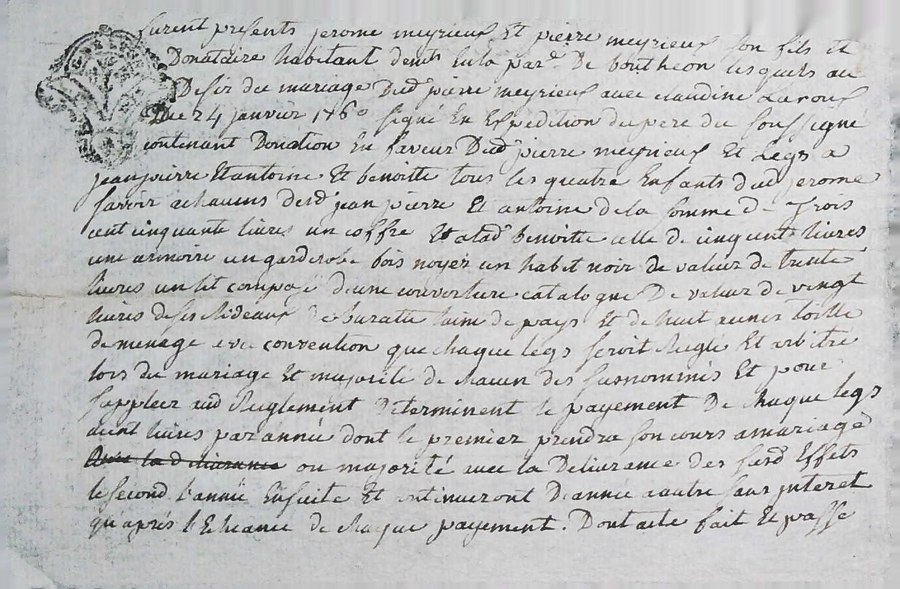 furent presents jerome meyrieux Et pierre meyrieux son fils Et
Donataire habitant dem.ts En la par.e De boutheon lesquels au
Desir du mariage Dud. pierre meyrieux avec claudine Laroux
du 24 janvier 1760 signé En Expedition du pere du soussigné
contenant Donation En faveur Dud. pierre meyrieux Et Legs a
jean pierre Et antoine Et benoitte tous les quatre Enfants dud. jerome
savoir a chacuns desd. jean pierre Et antoine de la somme de Trois
cent cinquante livres un coffre Et a lad. benoitte celle de cinq cent livres
une armoire un garderobe bois noyer un habit noir de valeur de trente
livres un lit composé d'une couverture catalogne De valeur de vingt
livres de ses Rideaux de buratte laine de pays Et de huit aunes toille
de menage avec convention que chaque legs seroit Reglé Et arbitré
lors du mariage Et majorité de chacun des susnommés Et pour
suppleer aud. Reglement Determinent le payement De chaque legs
a cent livres par année dont le premier prendra son cours a mariage
avec la delivrance ou majorité avec la Delivrance des susd. Effets
le second l'année Ensuite Et continueront D'année a autre sans interet
qu'apres l'Echeance de chaque payement. Dont acte fait Et passé